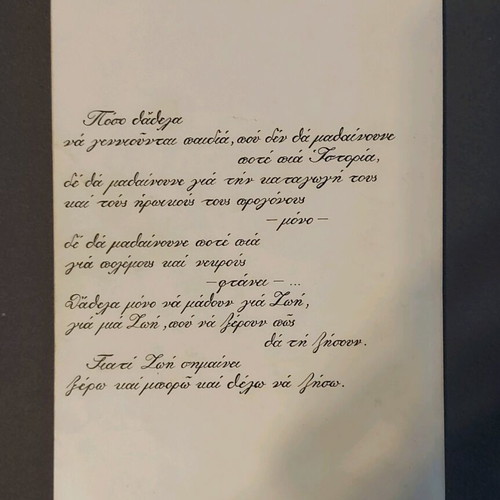 Πόσο θἄθελα
νά γεννιοῦνται παιδιά, πού δέν θά μαθαίνουνε
ποτέ πιά Ἱστορία,
δέ θά μαθαίνουνε γιά τήν καταγωγή τους
καί τούς ἡρωικούς τους προγόνους
– μόνο –
δέ θά μαθαίνουνε ποτέ πιά
γιά πολέμους καί νεκρούς
– φτάνει – ...
Θἄθελα μόνο νά μάθουν γιά Ζωή,
γιά μια Ζωή, πού νά ξέρουν πῶς
θά τή ζήσουν.
Γιατί Ζωή σημαίνει
ξέρω καί μπορῶ καί θέλω νά ζήσω.